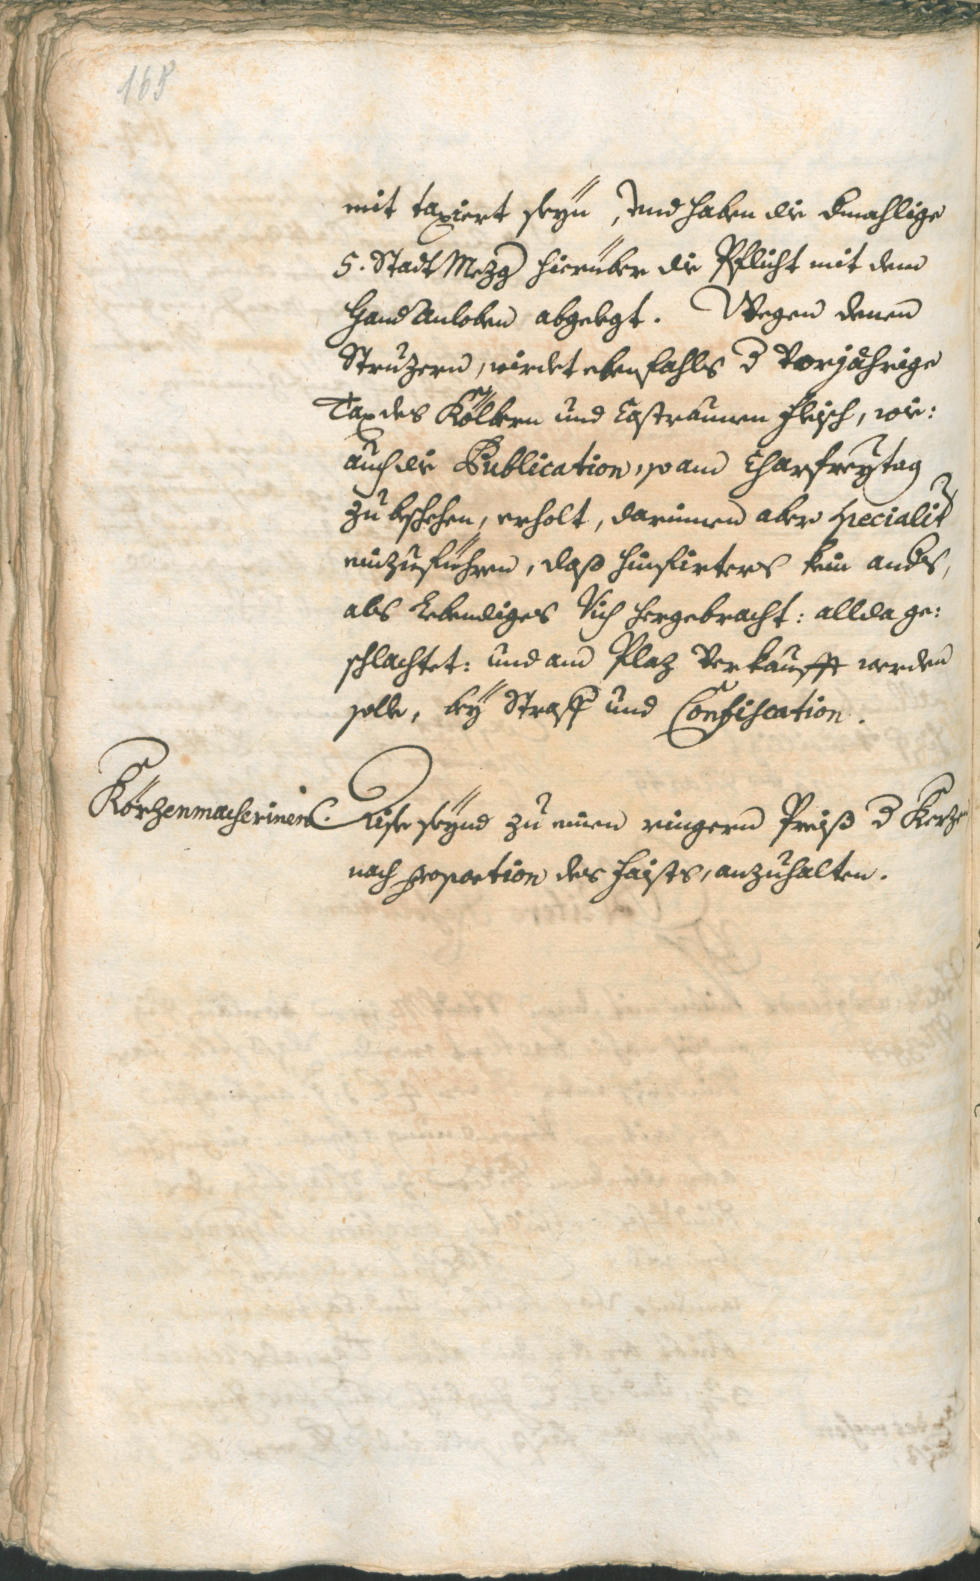 168
mit taxiert seyn, und haben die dermahlige
5. Stadt Mezg hierüber die Pflicht mit dem
Hand Anloben abgelegt. Wegen denen
Struzern, wirdet ebenfahls d vorjährige
Tax des Kölbern und Castraunen fleisch, wie:
auch die Publication, so am Charfreytag
zu beschehen, erholt, darinnen aber specialit
einzuführen, daß hinfirters kein anders,
als Lebendiges Vich hergebracht: allda ge:
schlachtet: und am Plaz verkaufft werden
solle, bey Straff und Confiscation.
Körzenmacherinen. Dise seynd zu einen ringern Preiß d Kerze
nach proportion des faists, anzuhalten.